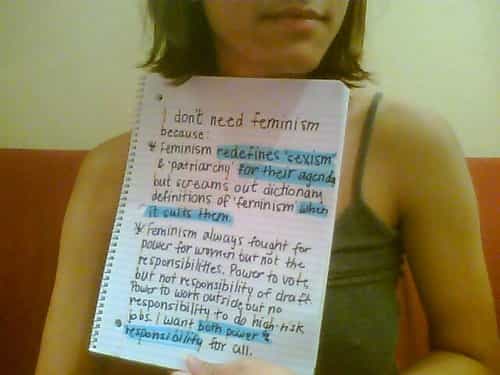 I don't need feminism
because:
* Feminism redefines 'sexism'
& 'patriarchy' for their agenda
but screams out dictionary
definitions of 'feminism' when
it suits them.
* Feminism always fought for
power for women but not the
responsibilities. Power to vote,
but not responsibility of draft.
Power to work outside but no
responsibility to do high-risk
jobs. I want both power &
responsibility for all.